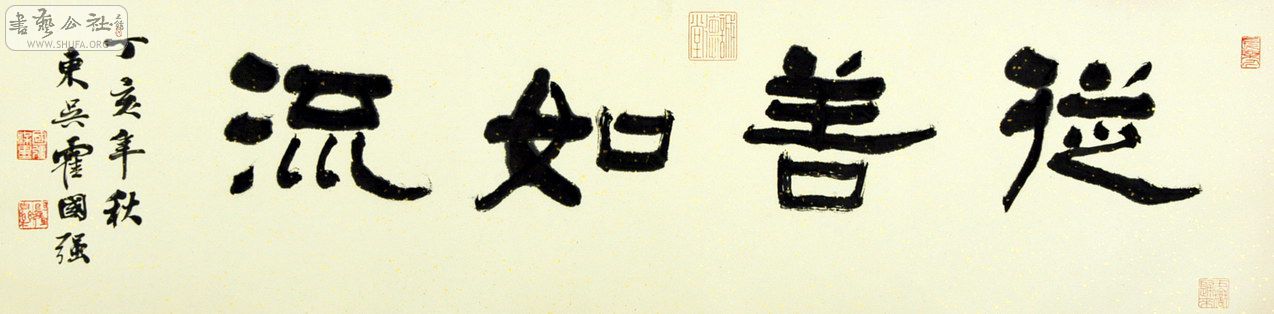 從善如流
丁亥年秋
東吳霍國强
書藝公社
WWW.SHUFA.ORG